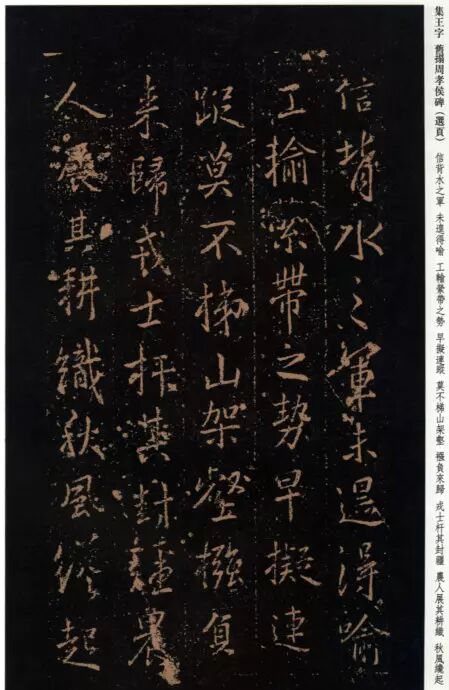 集王字 舊搨周孝侯碑（選頁） 信背水之軍 未遑得喻 工輸縈帶之勢 早擬連蹤 莫不梯山架壑 襁負來歸 戎士杆其封疆 農人展其耕織 秋風纔起
信背水之軍未遑得喻
工輸縈帶之勢早擬連
蹤莫不梯山架壑襁負
来歸戎士杆其封疆農
人展其耕織秋風纔起